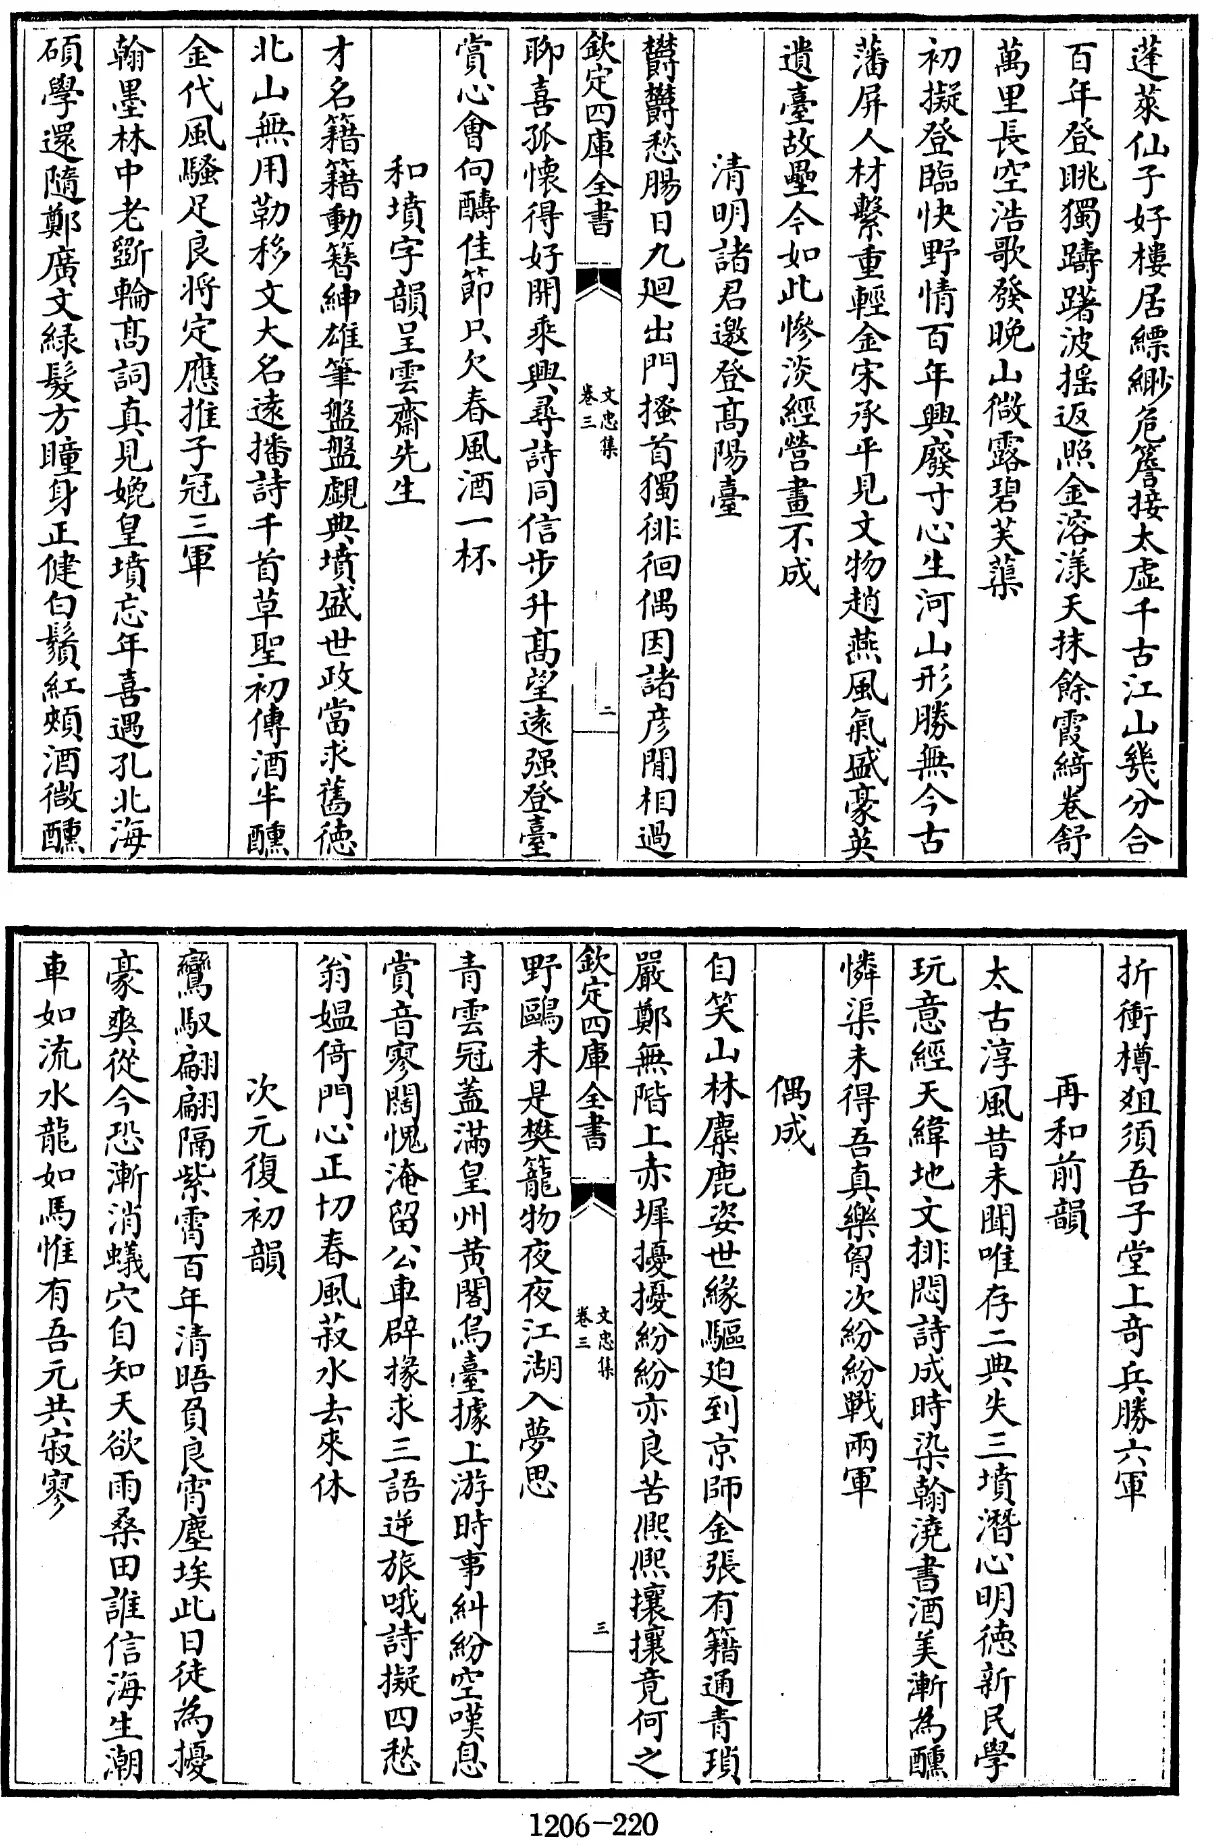 蓬萊仙子好樓居縹緲危簷接太虛千古江山幾分合
百年登眺獨躊躇波揺返照金溶漾天抹餘霞綺卷舒
萬里長空浩歌發晩山微露碧芙蕖
初擬登臨快野情百年興廢寸心生河山形勝無今古
藩屏人材繫重輕金宋承平見文物趙燕風氣盛豪英
遺臺故壘今如此慘淡經營畫不成
清明諸君邀登髙陽臺
欝欝愁腸日九廻出門搔首獨徘徊偶因諸彦閒相過
欽定四庫全書
文忠集
卷三
二
聊喜孤懐得好開乘興尋詩同信步升髙望逺强登臺
賞心會向酬佳節只欠春風酒一杯
和墳字韻呈雲齋先生
才名籍籍動簪紳雄筆盤盤覷典墳盛世政當求舊徳
北山無用勒移文大名逺播詩千首草聖初傳酒半醺
金代風騷足良將定應推子冠三軍
翰墨林中老斵輪髙詞真見媲皇墳忘年喜遇孔北海
碩學還隨鄭廣文緑髮方瞳身正健白鬚紅頰酒微醺
折衝樽爼須吾子堂上竒兵勝六軍
再和前韻
太古淳風昔未聞唯存二典失三墳潛心明徳新民學
玩意經天緯地文排悶詩成時染翰澆書酒美漸為醺
憐渠未得吾真樂胷次紛紛戰兩軍
偶成
自笑山林麋鹿姿世緣驅廹到京師金張有籍通青瑣
嚴鄭無階上赤墀擾擾紛紛亦良苦熈熈攘攘竟何之
欽定四庫全書
文忠集
卷三
三
野鷗未是樊籠物夜夜江湖入夢思
青雲冠蓋滿皇州黄閣烏臺據上游時事糾紛空嘆息
賞音寥濶愧淹留公車辟掾求三語逆旅哦詩擬四愁
翁媼倚門心正切春風菽水去來休
次元復初韻
鸞馭翩翩隔紫霄百年清晤負良宵塵埃此日徒為擾
豪爽從今恐漸消蟻穴自知天欲雨桑田誰信海生潮
車如流水龍如馬惟有吾元共寂寥
1206-220